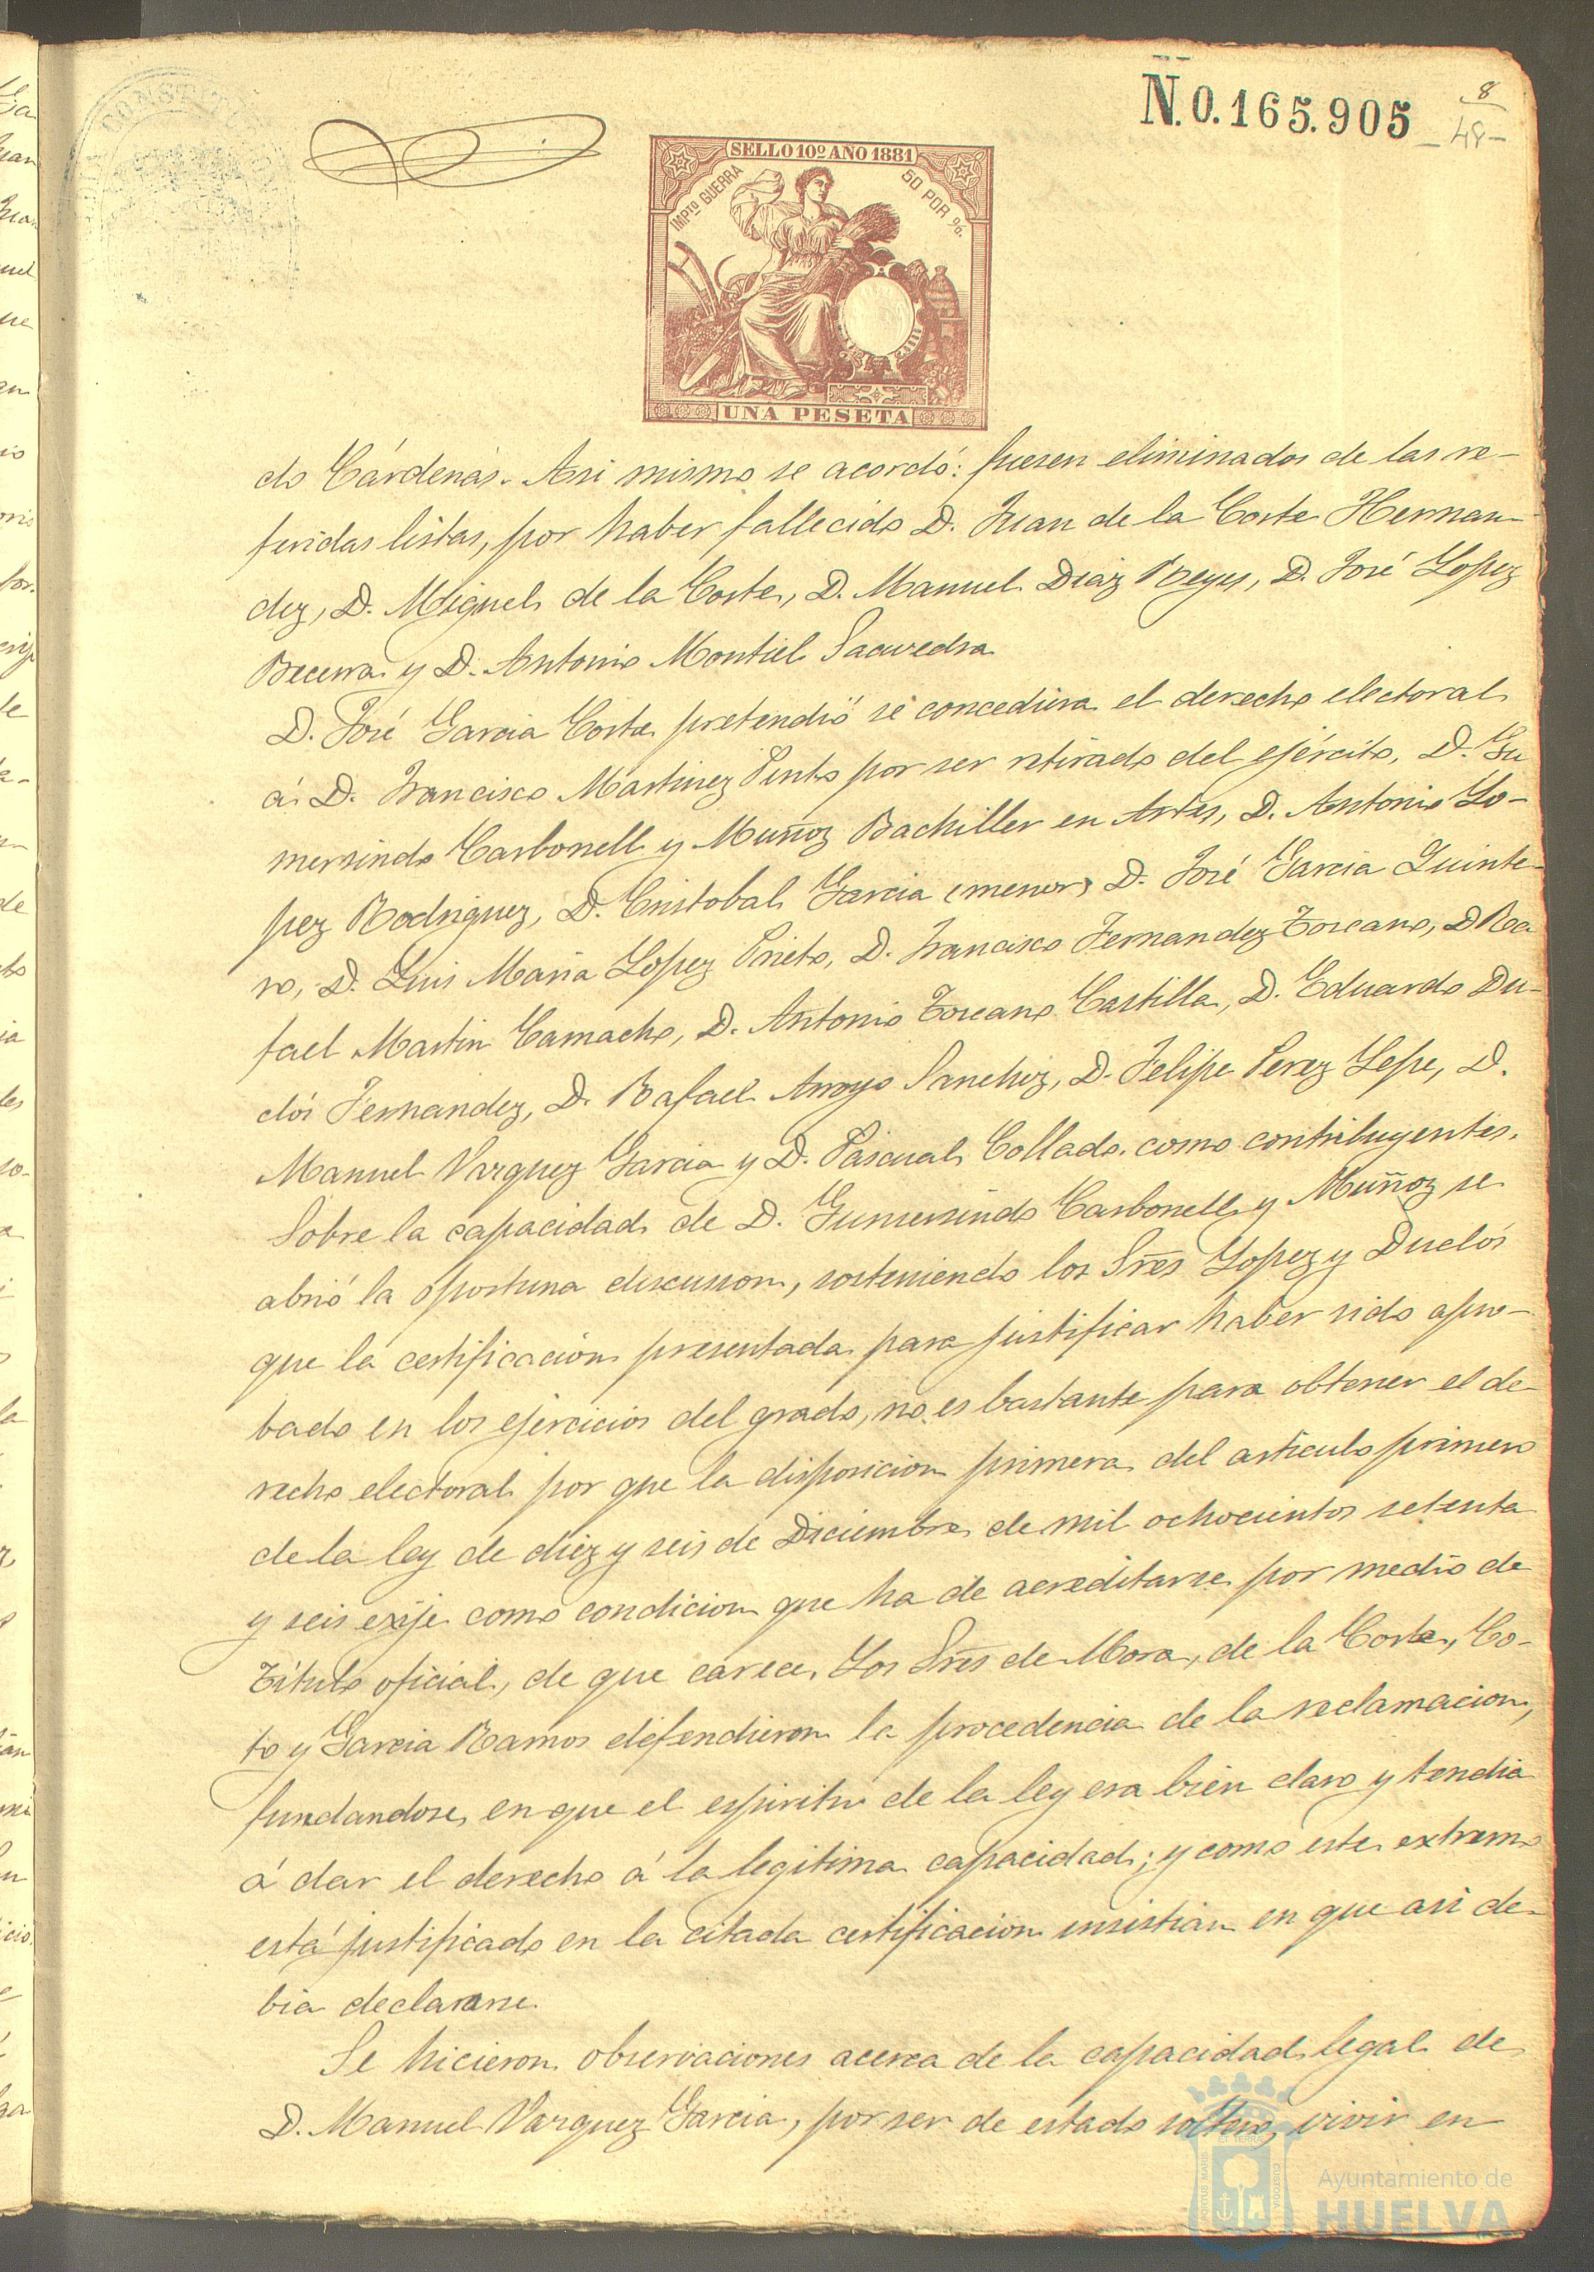 N.0.165.905
8
48
SELLO 10º AÑO 1881
IMPTO GUERRA
50 POR %.
UNA PESETA
do Cárdenas. Asi mismo se acordó: fuesen eliminados de las re-
feridas listas, por haber fallecido D. Juan de la Corte Hernan-
dez, D. Miguel de la Corte, D. Manuel Diaz Reyes, D. José Lopez
Becerra y D. Antonio Montiel Saavedra
D. José Garcia Corte pretendió se concediera el derecho electoral
á D. Francisco Martinez Pinto por ser retirado del ejército, D. Gu
mersindo Carbonell y Muñoz Bachiller en Artes, D. Antonio Lo-
pez Rodriguez, D. Cristobal Garcia (menor) D. José Garcia Quinte-
ro, D. Luis Maria Lopez Prieto, D. Francisco Fernandez Toscano, D Ra
fael Martin Camacho, D. Antonio Toscano Castilla, D. Eduardo Du-
clós Fernandez, D. Rafael Arroyo Sanchez, D. Felipe Perez Lepe, D.
Manuel Vazquez Garcia y D. Pascual Collado. como contribuyentes.
Sobre la capacidad de D. Gumersindo Carbonell y Muñoz se
abrió la oportuna discusion, sosteniendo los Sres Lopez y Duclós
que la certificacion presentada para justificar haber sido apro-
bado en los ejercicios del grado, no es bastante para obtener el de-
recho electoral por que la disposicion primera del articulo primero
de la ley de diez y seis de Diciembre de mil ochocientos setenta
y seis exije como condicion que ha de acreditarse por medio de
Título oficial, de que carece. Los Sres de Mora, de la Corte, Co-
to y Garcia Ramos défendieron la procedencia de la reclamacion,
fundandose, en que el espiritu de la ley era bien claro y tendia
á dar el derecho á la legitima capacidad; y como este extremo
está justificado en la citada certificacion insistian en que asi de-
bia declararse.
Se hicieron observaciones acerca de la capacidad legal de
D. Manuel Vazquez Garcia, por ser de estado soltero, vivir en
Ayuntamiento de
HUELVA